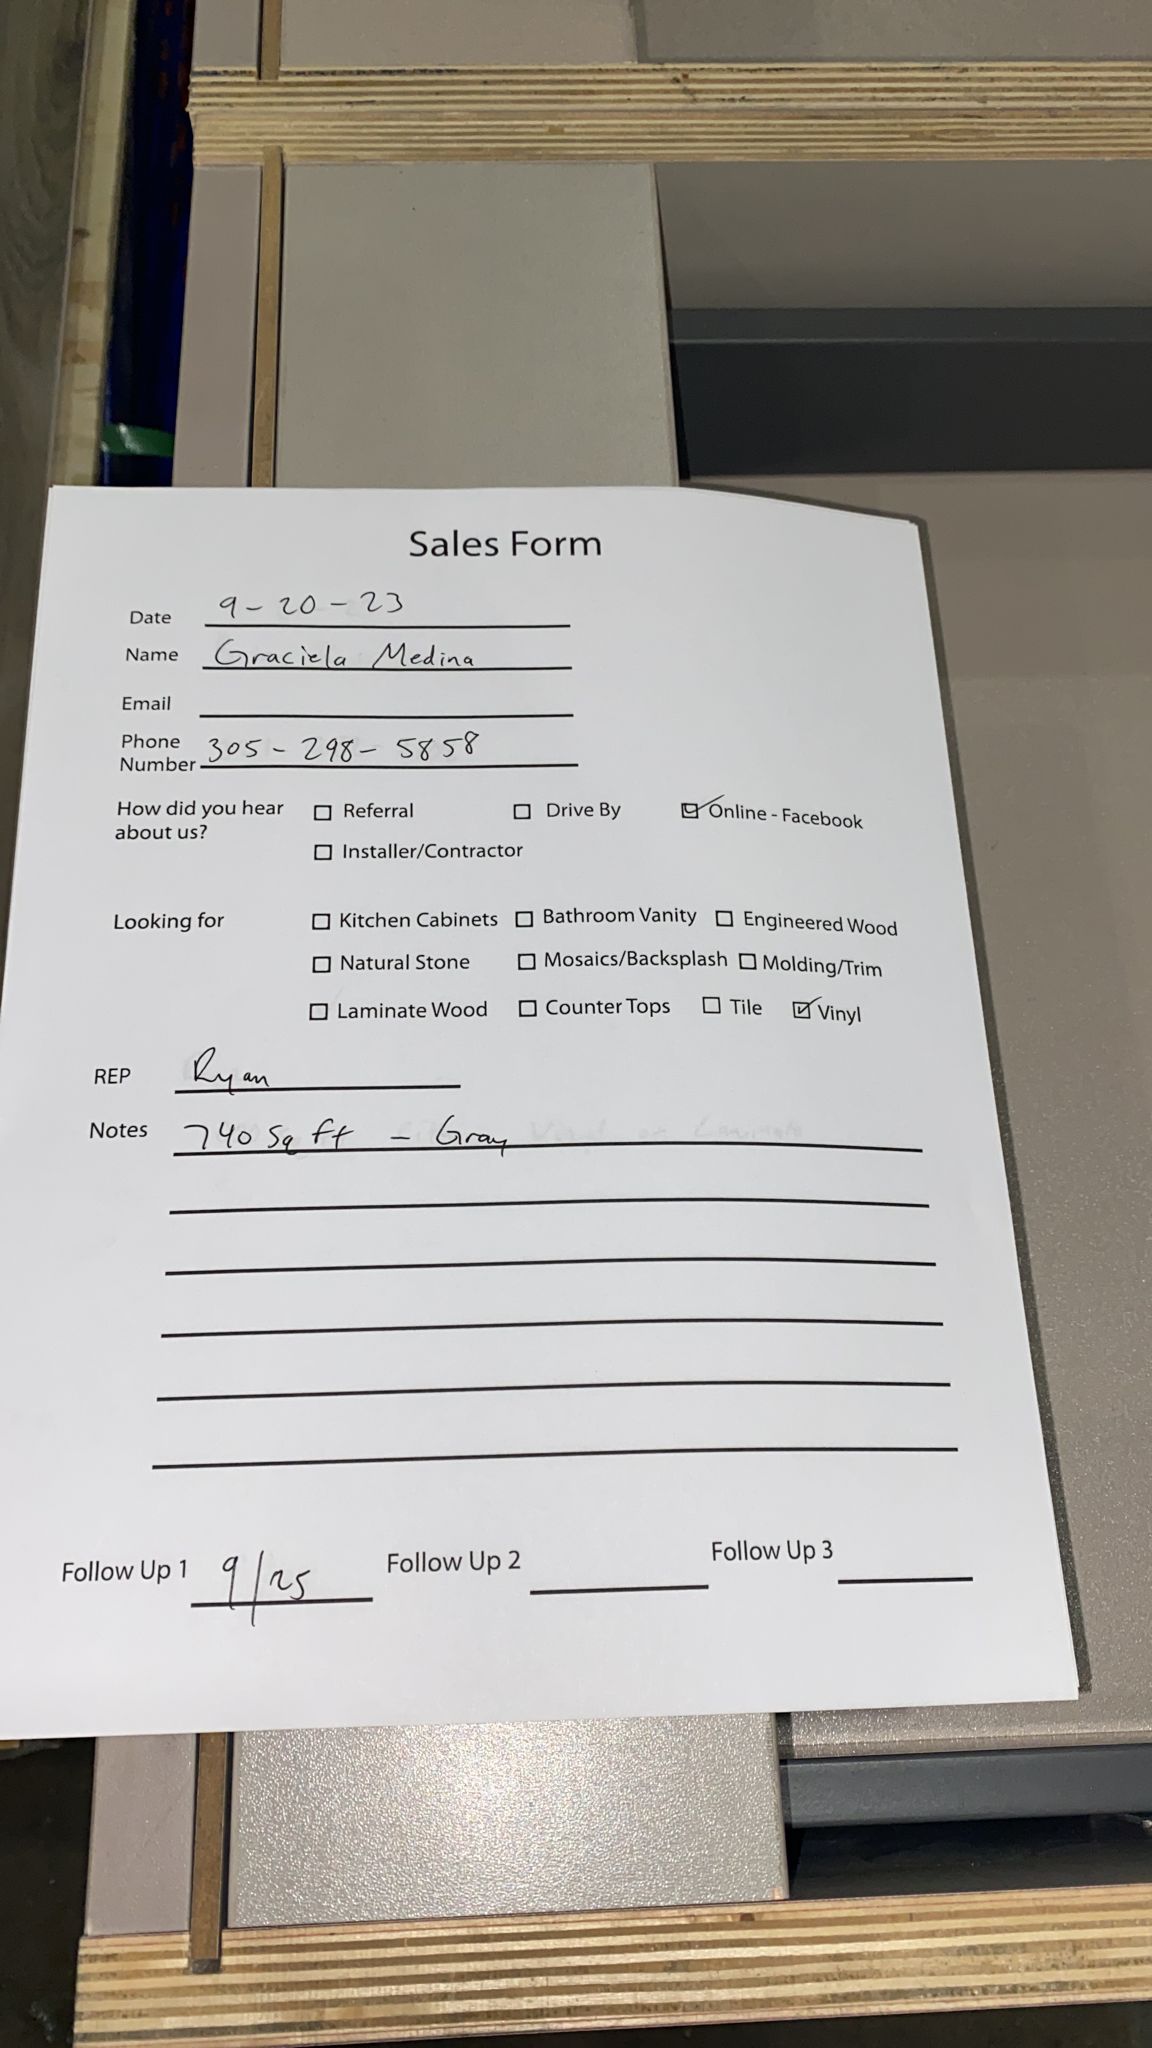 Sales Form
Date 9-20-23
Name Graciela Medina
Email
Phone Number 305-298-5858
How did you hear about us? ☐ Referral ☐ Drive By ☑ Online - Facebook
☐ Installer/Contractor
Looking for ☐ Kitchen Cabinets ☐ Bathroom Vanity ☐ Engineered Wood
☐ Natural Stone ☐ Mosaics/Backsplash ☐ Molding/Trim
☐ Laminate Wood ☐ Counter Tops ☐ Tile ☑ Vinyl
REP Ryan
Notes 740 Sq ft - Gray
Follow Up 1 9/25 Follow Up 2 Follow Up 3